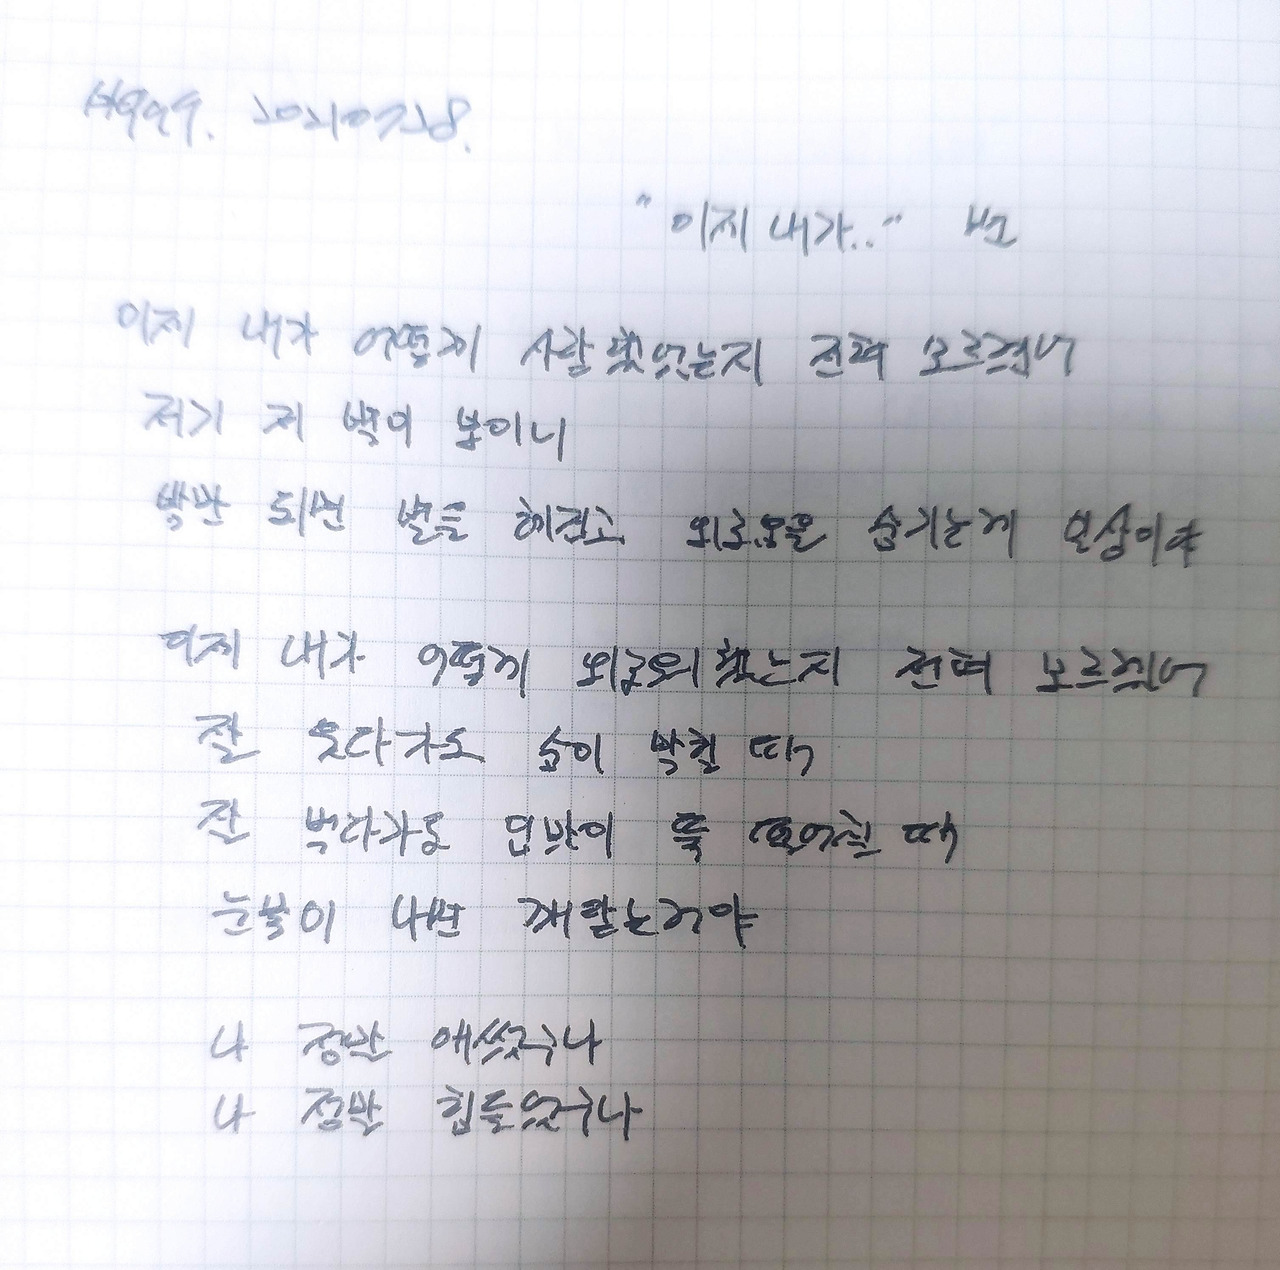 #999. 20210728.
"이제 내가.." 中
이제 내가 어떻게 사랑했었는지 전혀 모르겠어
저기 저 벽이 보이니
밤만 되면 별을 헤집고 외로움을 숨기는게 일상이야
이제 내가 어떻게 외로워했는지 전혀 모르겠어
잘 웃다가도 숨이 막힐 때
잘 먹다가도 입맛이 뚝 떨어질 때
눈물이 나면 깨닫는거야
나 정말 애썼구나
나 정말 힘들었구나